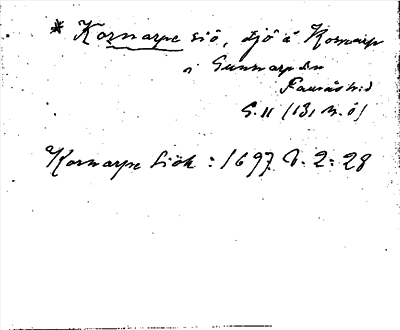 * Kornarpe siö, sjö å Kornarp
i Gunnarp sn
Fauråsh:d
G.11 (13, n.ö)
Kornarpe Siöh : 1697 V. 2: 28